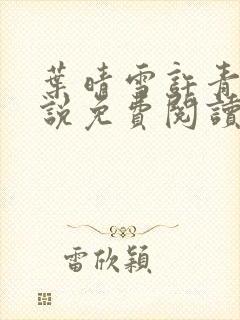 葉晴雪許青
說免費閱讀
雷欣穎